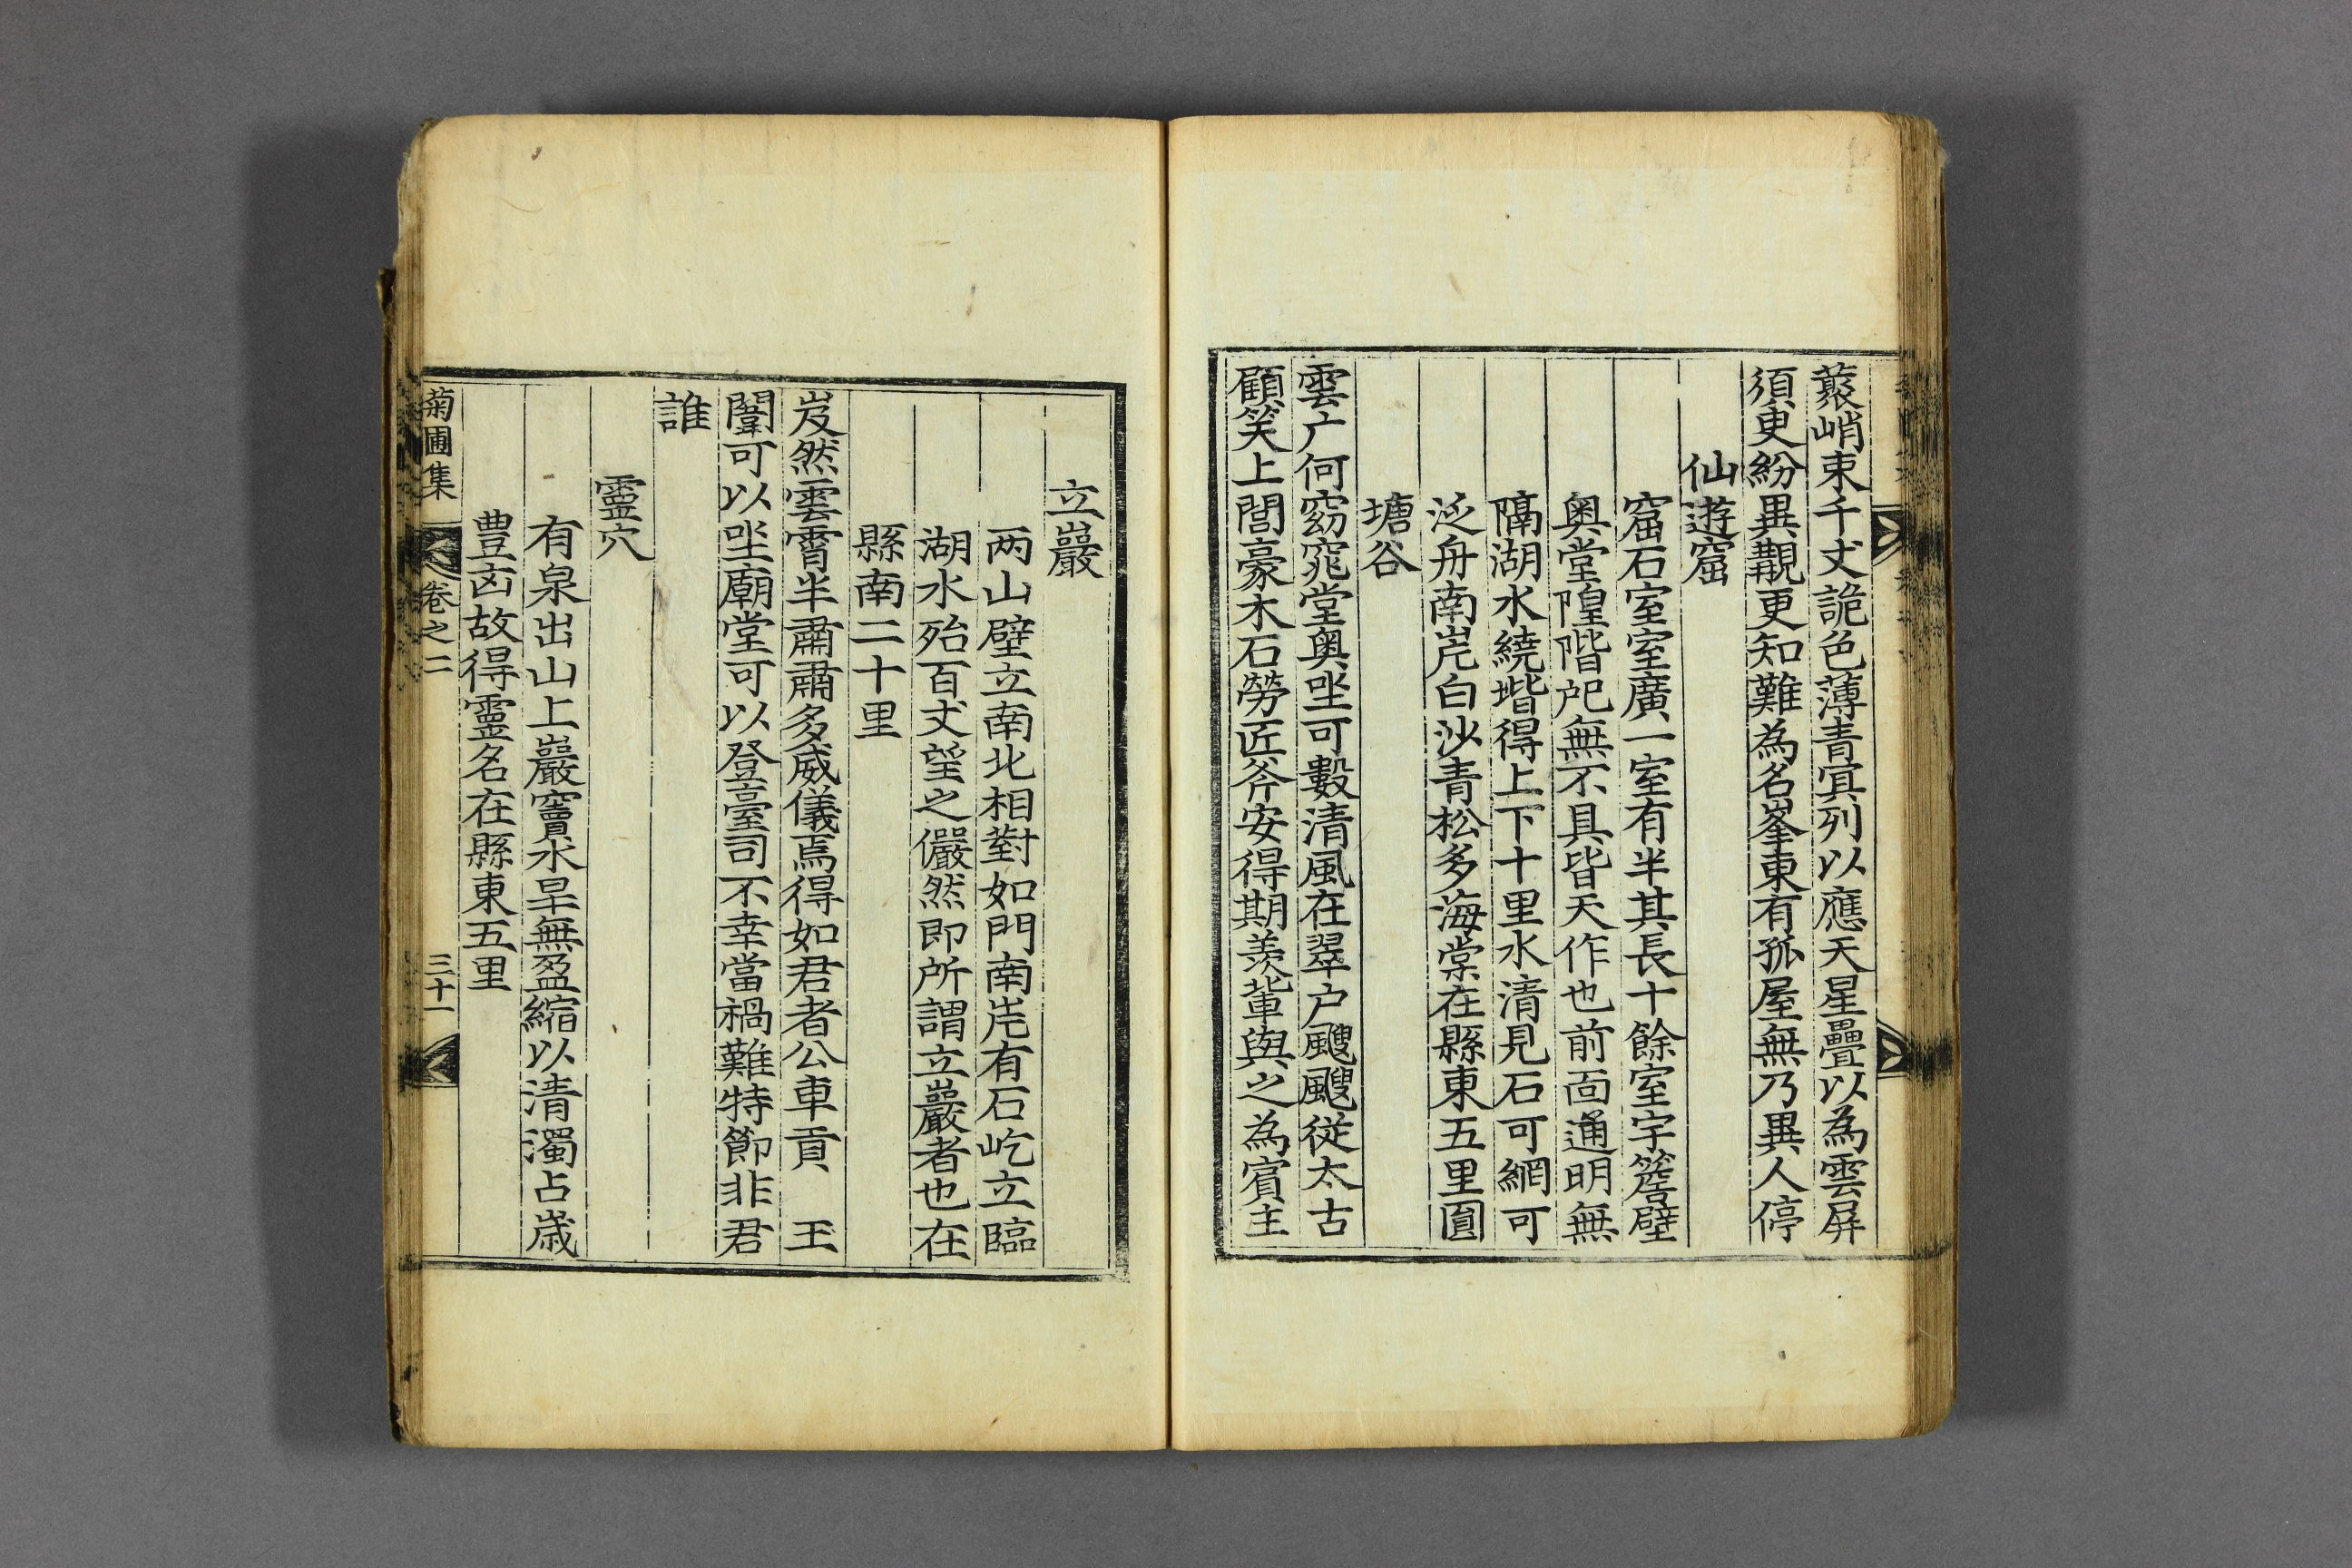 藂峭束千丈詭色薄青冥列以應天星疊以為雲屏
須臾紛異覯更知難為名峯東有孤屋無乃異人停
仙遊窟
窟石室室廣一室有半其長十餘室宇簷壁
奧堂隍階戺無不具皆天作也前面通明無
隔湖水繞堦得上下十里水清見石可網可
泛舟南崖白沙青松多海棠在縣東五里圓
塘谷
雲广何窈窕堂奧坐可數清風在翠户颼颼從太古
顧笑上誾豪木石勞匠斧安得期羨輩與之為賓主
立巖
两山壁立南北相對如門南崖有石屹立臨
湖水殆百丈望之儼然即所謂立巖者也在
縣南二十里
岌然雲霄半肅肅多威儀焉得如君者公車貢 王
闈可以坐廟堂可以登臺司不幸當禍難特節非君
誰
靈穴
有泉出山上巖竇水旱無盈縮以清濁占歲
豊㐫故得靈名在縣東五里
菊圃集 卷之二 三十一